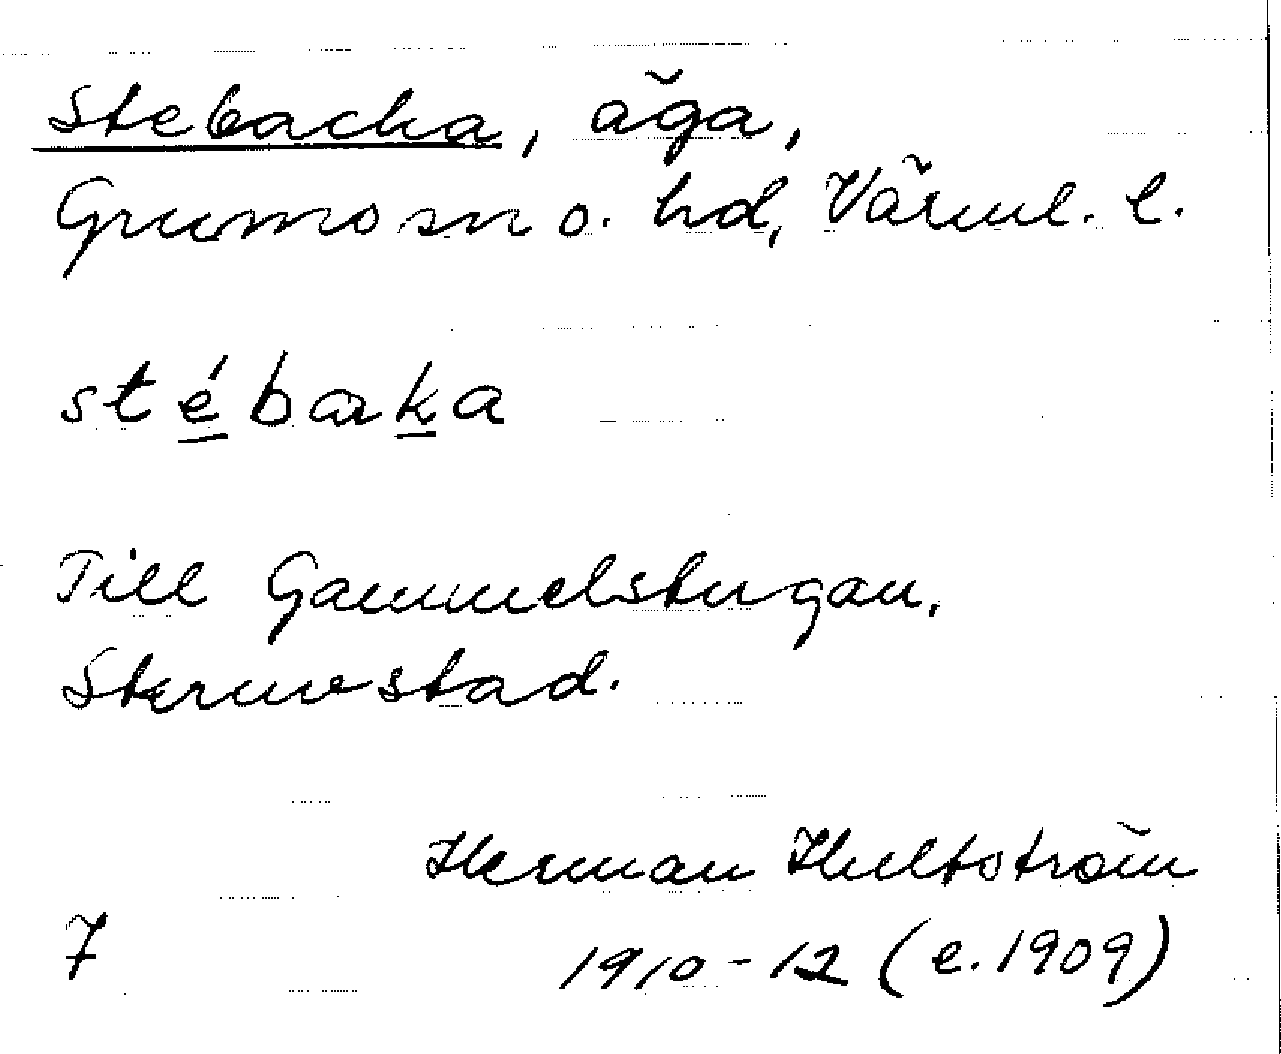 Stebacka, äga,
Grums sn o. hd, Värml. l.
stébaka
Till Gammelstugan,
Stermstad.
Herman Hultström
7 1910-12 (e. 1909)